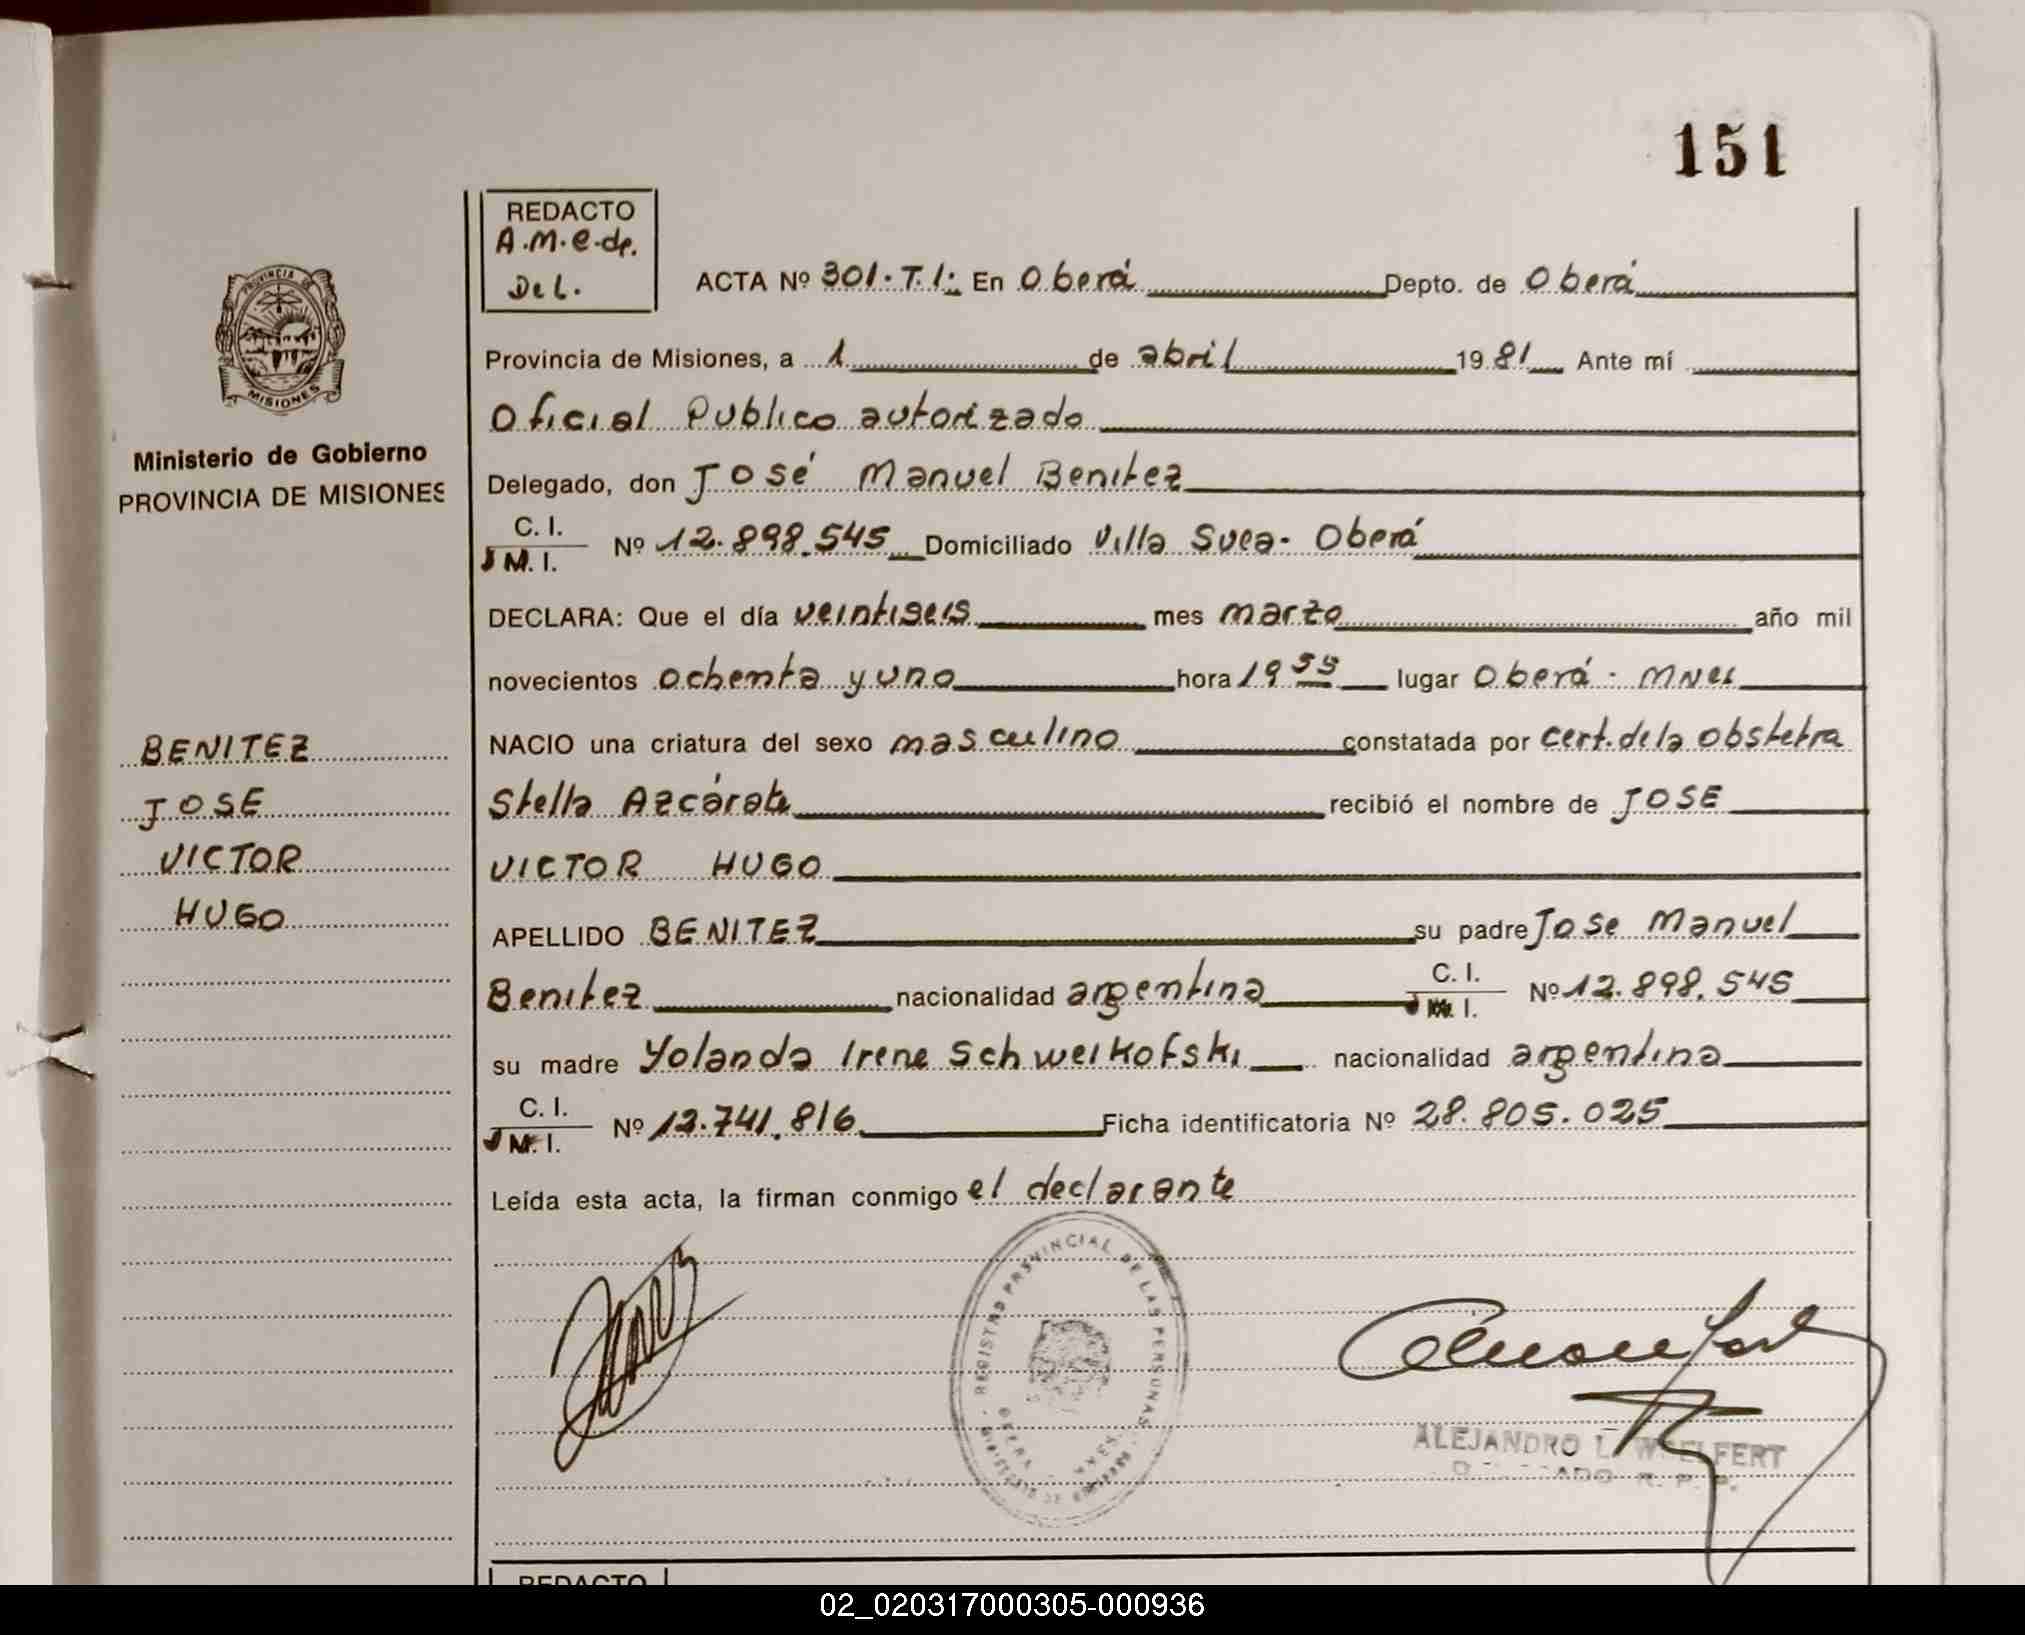 151
REDACTO
A.M.e-dp.
Del.
ACTA Nº 301-T.I: En Oberá Depto. de Oberá
PROVINCIA DE
MISIONES
Ministerio de Gobierno
PROVINCIA DE MISIONES
Provincia de Misiones, a 1 de abril 1981 Ante mí
Oficial Publico autorizado
Delegado, don José Manuel Benitez
C. I.
M. I. Nº 12.898.545 Domiciliado Villa Suca- Oberá
DECLARA: Que el día veintiseis mes marzo año mil
novecientos ochenta y uno hora 19 55 lugar Oberá - Mnes
BENITEZ
JOSE
VICTOR
HUGO
NACIO una criatura del sexo masculino constatada por cert. de la obstetra
Stella Azcárate recibió el nombre de JOSE
VICTOR HUGO
APELLIDO BENITEZ su padre Jose Manuel
Benitez nacionalidad argentina C. I. M. I. Nº 12.898.545
su madre Yolanda Irene Schweikofski nacionalidad argentina
C. I.
M. I. Nº 12.741.816 Ficha identificatoria Nº 28.805.025
Leída esta acta, la firman conmigo el declarante
REGISTRO PROVINCIAL DE LAS PERSONAS
ALEJANDRO L. WOELFERT
DELEGADO R. P. P.
REDACTO
02_020317000305-000936